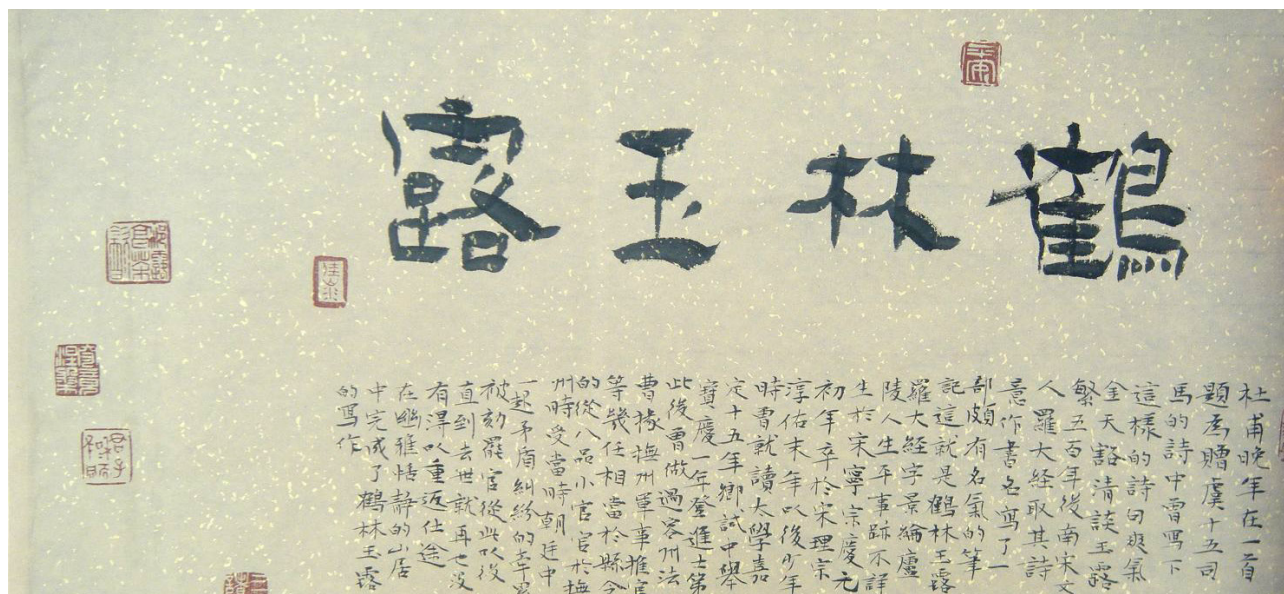 鶴林玉露
杜甫晚年在一首
題為贈虞十五司
馬的詩中曾寫下
這樣的詩句爽氣
金天豁清談玉露
繁五百年後南宋文
人羅大経取其詩
意作書名寫了一
部頗有名氣的筆
記這就是鶴林玉露
羅大経字景綸廬
陵人生平事跡不詳
生於宋寧宗慶元
初年卒於宋理宗
淳佑末年以後少年
時曾就讀太學嘉
定十五年鄉試中舉
寶慶一年登進士第
此後曾做過容州法
曹掾撫州軍事推官
等幾任相當於縣令
的從八品小官官於撫
州時受當時朝廷中
一起矛盾糾紛的牽累
被劾罷官從此以後
直到去世就再也沒
有得以重返仕途
在幽雅恬静的山居
中完成了鶴林玉露
的寫作